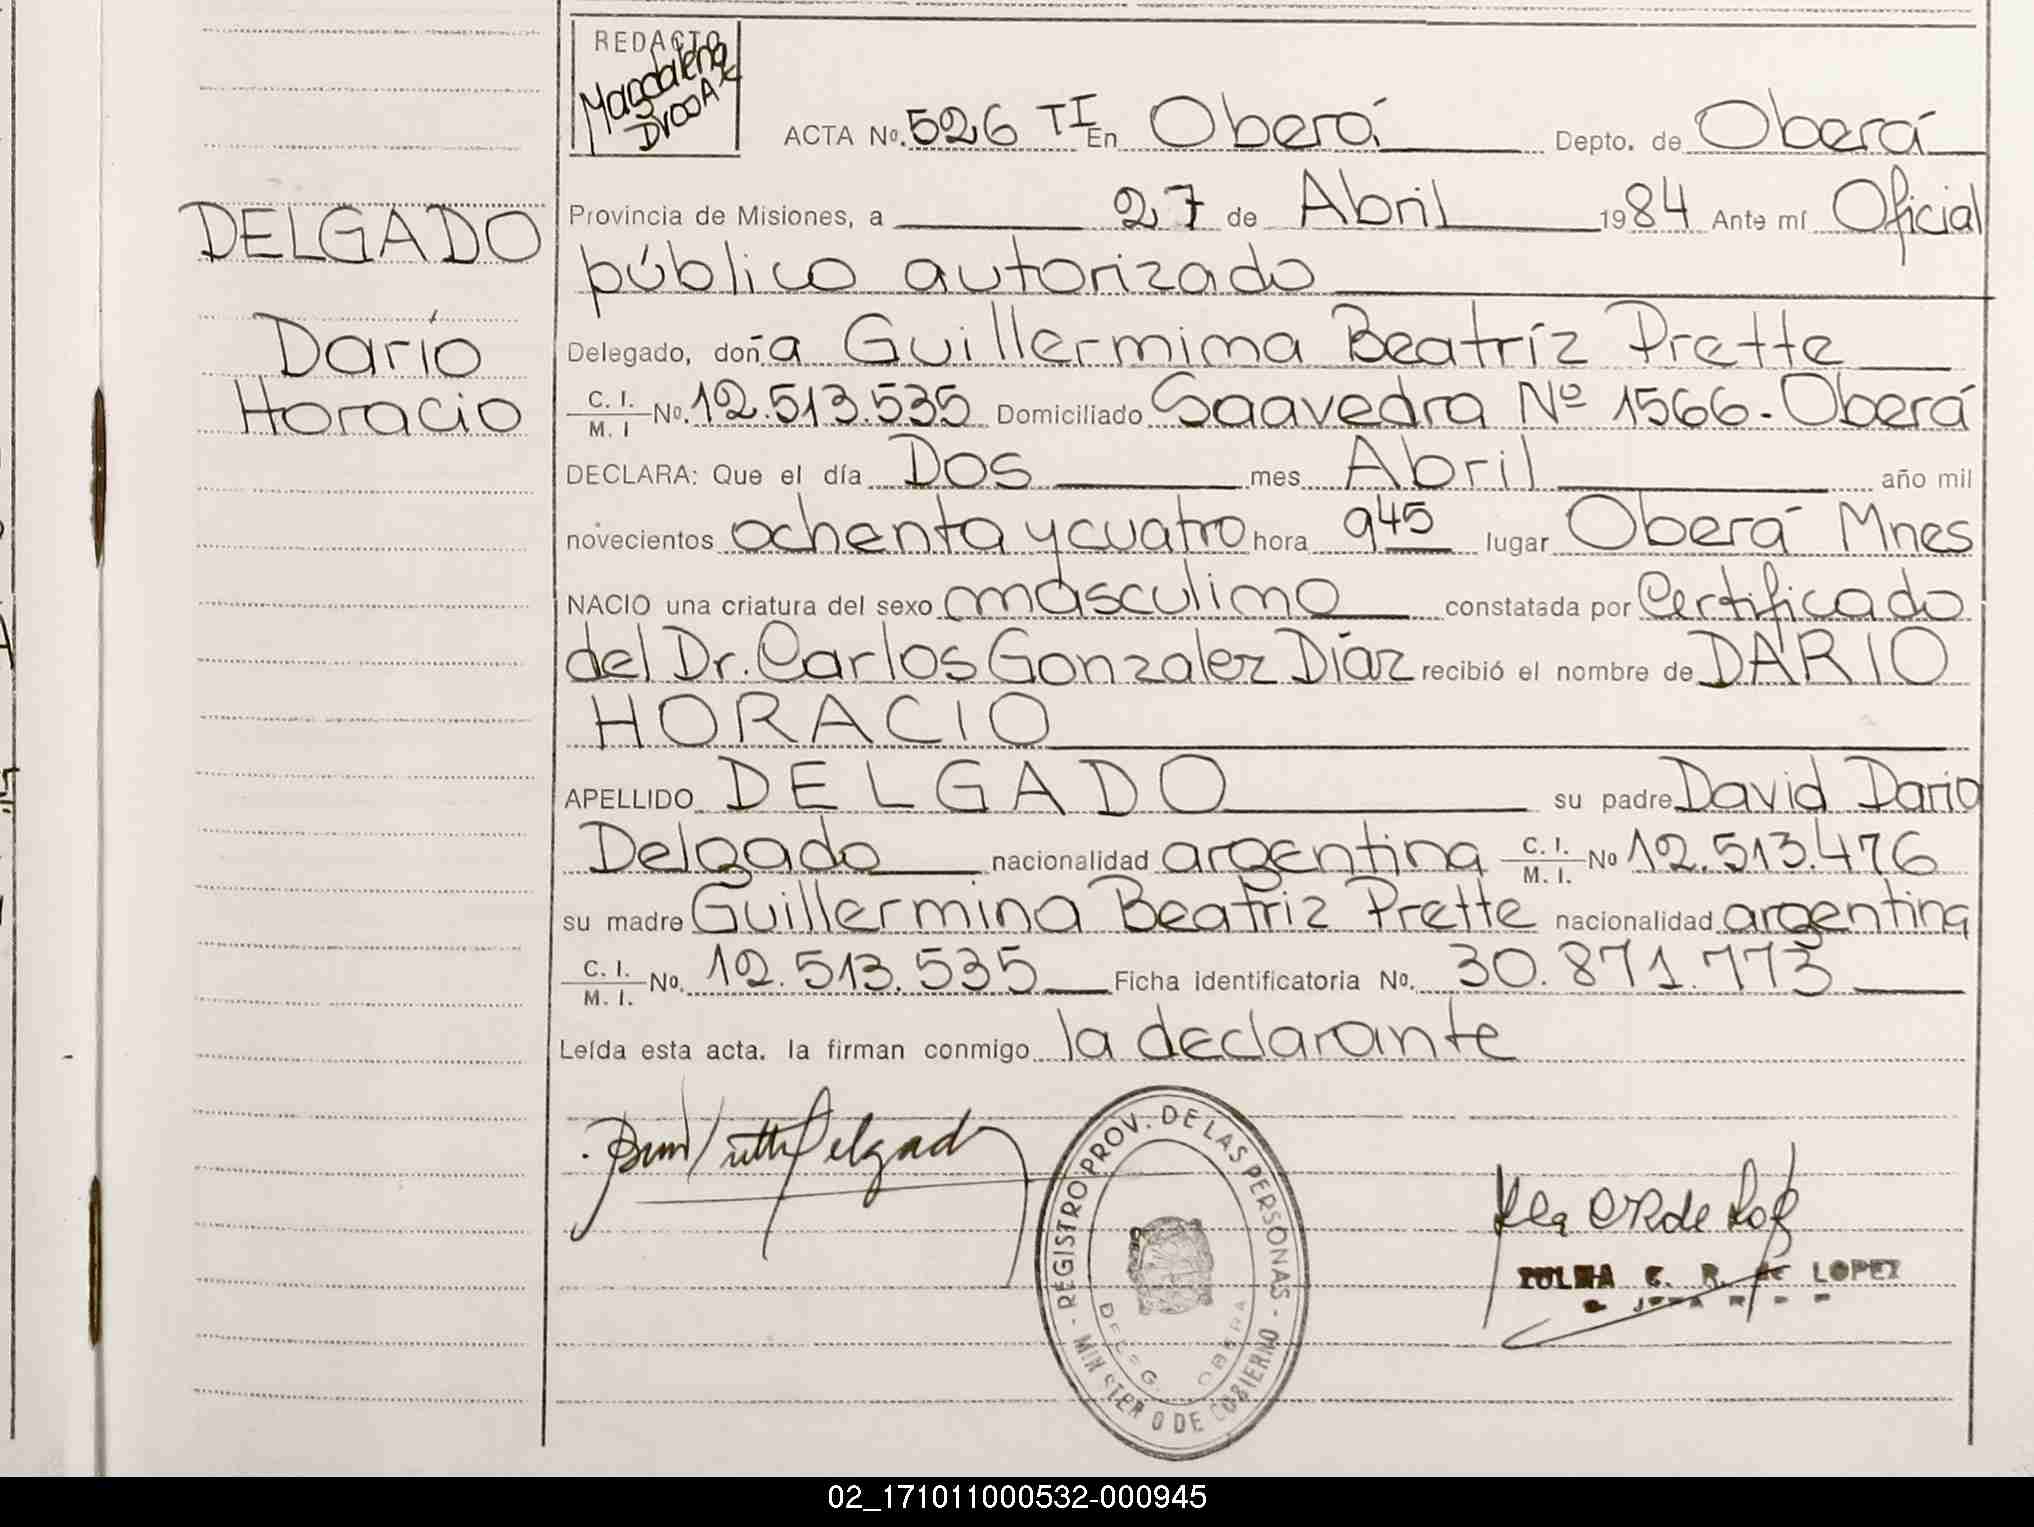 REDACTO
Magdalena
ACTA Nº. 526 TI En Oberá Depto. de Oberá
DELGADO
Darío
Horacio
Provincia de Misiones, a 27 de Abril 1984 Ante mí Oficial
público autorizado
Delegado, doña Guillermina Beatríz Prette
C. I. / M. I Nº. 12.513.535 Domiciliado Saavedra Nº 1566 - Oberá
DECLARA: Que el día Dos mes Abril año mil
novecientos ochenta y cuatro hora 9 45 lugar Oberá Mnes
NACIO una criatura del sexo masculino constatada por Certificado
del Dr. Carlos Gonzalez Díaz recibió el nombre de DARIO
HORACIO
APELLIDO DELGADO su padre David Dario
Delgado nacionalidad argentina C. I. / M. I. Nº 12.513.476
su madre Guillermina Beatriz Prette nacionalidad argentina
C. I. / M. I. Nº. 12.513.535 Ficha identificatoria Nº. 30.871.773
Leída esta acta. la firman conmigo la declarante
REGISTRO PROV. DE LAS PERSONAS - MINISTERIO DE GOBIERNO -
DELEG. OBERA
ZULMA C. R. de LOPEZ
02_171011000532-000945